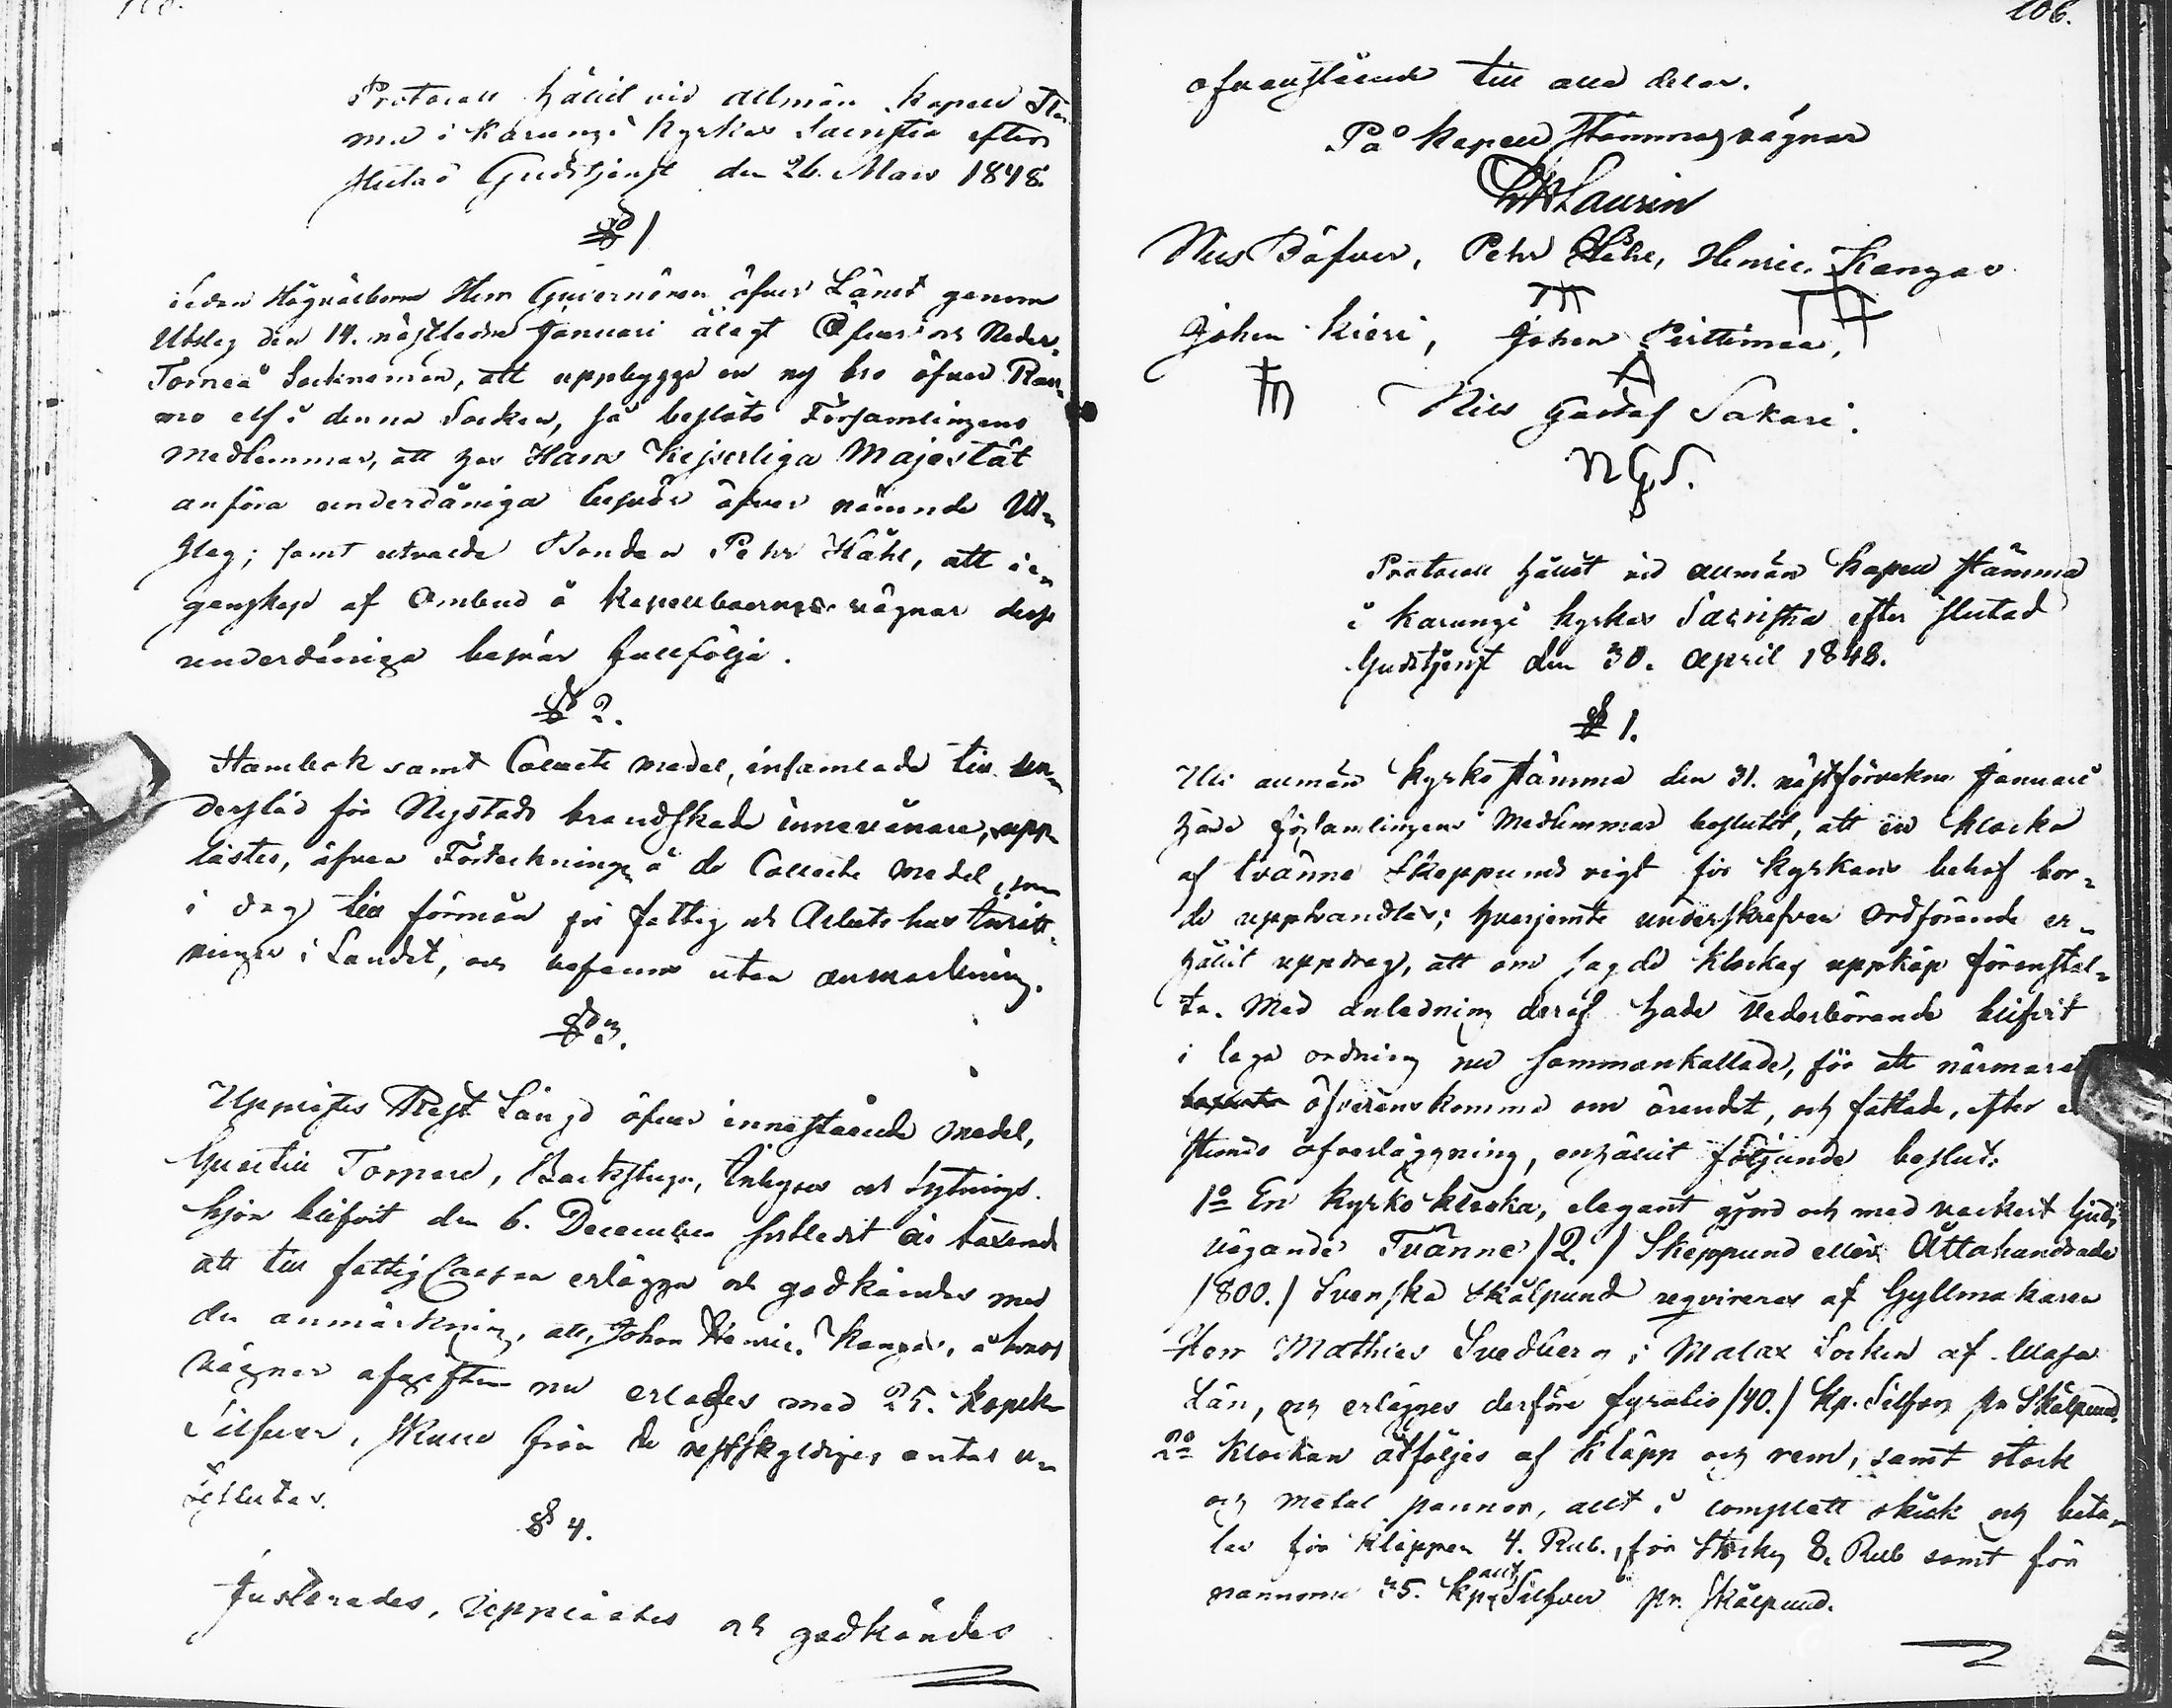 Protocoll hållit vid allmän kapell Stäm
ma i Karungi kyrkas Sacristia efter
slutad Gudstjenst den 26. Mars 1848.
§ 1
sedan Högvälborne Herr Guvernören öfver Länet genom
Utslag den 14. nästledne Januari ålagt Öfver och Neder-
Torneå Sockneman, att uppbygga en ny bro öfver Rau-
mo elf i denna Socken, så beslöto Församlingens
medlemmar, att hos Hans Kejserliga Majestät
anföra underdåniga besvär öfver nämnde Ut-
slag; samt utvalde Bonden Pehr Håhl, att i e-
genskap af Ombud å kapellboernas vägnar dessa
underdåniga besvär fullfölja.
§ 2.
Stambok samt Collecte medel, insamlade till un-
derstöd för Nystads brandskade innevånare, upp-
lästes, äfven Förteckninge å de Collecte medel, som
i dag till förmån för fattig och Arbetshus Inrätt-
ningar i Landet, och befanns utan anmärkning.
§ 3.
Upplästes Rest Längd öfver innestående medel,
huartill Torpare, Backstugu, Inhyses och Sytnings-
hjon blifvit den 6. December sistledit år taxerade
att till fattig Cassan erlägga och godkändes med
den anmärkning, att, Johan Henric Kangas, å hvars
vägnar afgiften nu erlades med 25. kopek
Silfver, skulle från de restskyldiges antal u-
teslutas.
§ 4.
Justerades, upplästes och godkändes
106.
ofvanstående till alla delar.
På kapell Stämmas vägnar
Laurin
Nils Böfver, Pehr Håhl, Henric Kangas
Johan Kieri, Johan Pirttimaa,
Nils Gustaf Sakari.
N G S.
Protocoll hållit vid allmän kapell Stämma
i Karungi kyrkas Sacristia efter slutad
Gudstjenst den 30. April 1848.
§ 1.
Uti allmän kyrko stämma den 31. nästförvekne Januari
hade församlingens Medlemmar beslutit, att en klocka
af tvänne Skeppund vigt för kyrkans behof bor-
de upphandlas; hvarjemte underskrefven Ordförande er-
hållit uppdrag, att om sagde klockas uppköp föranstal-
ta. Med anledning deraf hade Vederbörande blifvit
i laga ordning nu sammankallade, för att närmare
öfverenskomma om ärendet, och fattade, efter en
stunds öfverläggning, enhälligt följande beslut:
1o En kyrko klocka, elegant gjord och med vackert ljud,
vägande Tvänne /2./ Skeppund eller Åttahundrade
/800./ Svenska Skålpund reqvireras af Gyllmakaren
Herr Mathias Svedberg i Malax Socken af Wasa
Län, och erlägges derföre fyratio /40./ kp. Silfver pr Skålpund.
2o Klockan åtföljes af kläpp och rem, samt stock
och metal pannor, allt i complett skick och beta-
las för kläppen 4. Rub., för Stocken 8. Rub samt för
pannorne 35. kp allt Silfver pr. Skålpund.